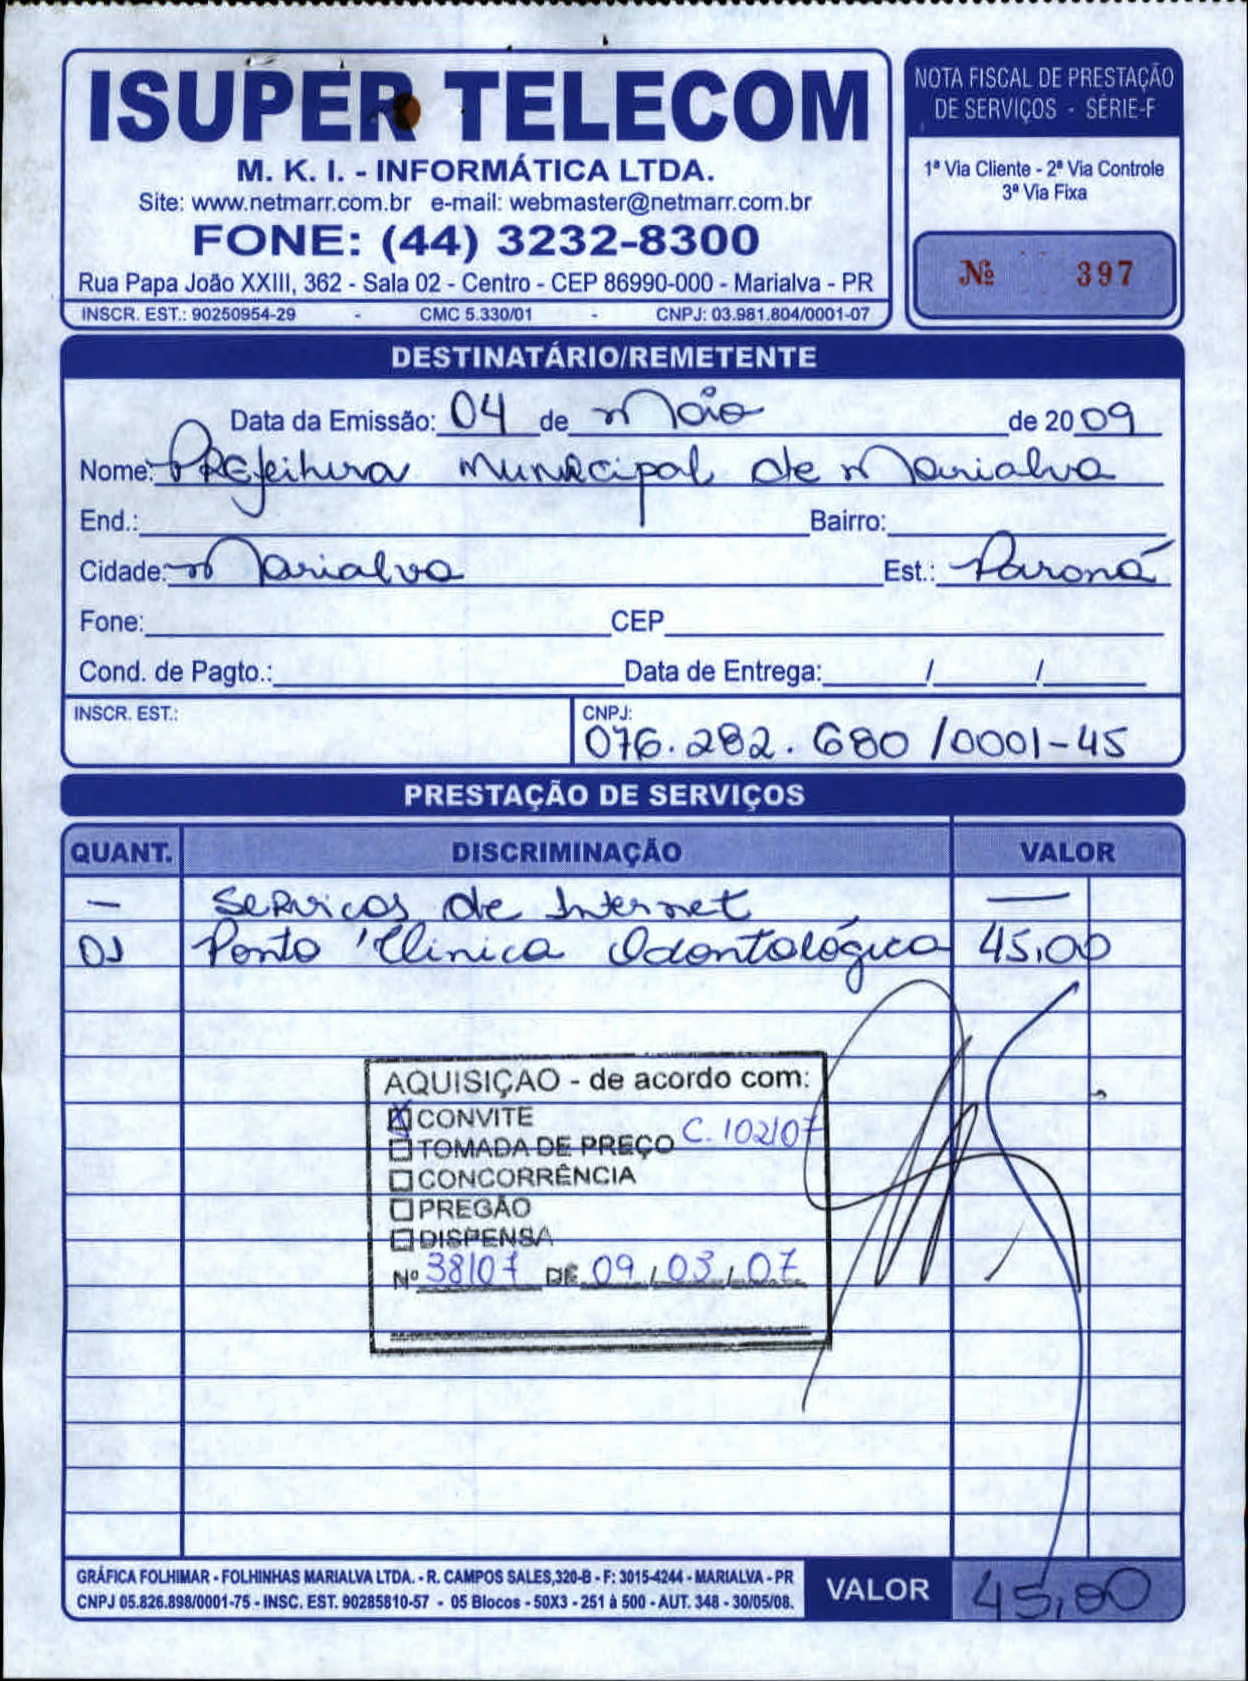 ISUPER TELECOM
M. K. I. - INFORMÁTICA LTDA.
Site: www.netmarr.com.br e-mail: webmaster@netmarr.com.br
FONE: (44) 3232-8300
Rua Papa João XXIII, 362 - Sala 02 - Centro - CEP 86990-000 - Marialva - PR
INSCR. EST.: 90250954-29 - CMC 5.330/01 - CNPJ: 03.981.804/0001-07
NOTA FISCAL DE PRESTAÇÃO
DE SERVIÇOS - SÉRIE-F
1ª Via Cliente - 2ª Via Controle
3ª Via Fixa
Nº 397
DESTINATÁRIO/REMETENTE
Data da Emissão: 04 de Maio de 2009
Nome: Prefeitura Municipal de Marialva
End.: Bairro:
Cidade: Marialva Est.: Paraná
Fone: CEP
Cond. de Pagto.: Data de Entrega: / /
INSCR. EST.: CNPJ:
076.282.680/0001-45
PRESTAÇÃO DE SERVIÇOS
QUANT. DISCRIMINAÇÃO VALOR
— Servicos de Internet —
01 Ponto Clinica Odontológica 45,00
AQUISIÇAO - de acordo com:
CONVITE
TOMADA DE PREÇO C. 102/07
CONCORRÊNCIA
PREGÃO
DISPENSA
Nº 38/07 DE 09/03/07
GRÁFICA FOLHIMAR - FOLHINHAS MARIALVA LTDA. - R. CAMPOS SALES,320-B - F: 3015-4244 - MARIALVA - PR
CNPJ 05.826.898/0001-75 - INSC. EST. 90285810-57 - 05 Blocos - 50X3 - 251 à 500 - AUT. 348 - 30/05/08.
VALOR 45,00